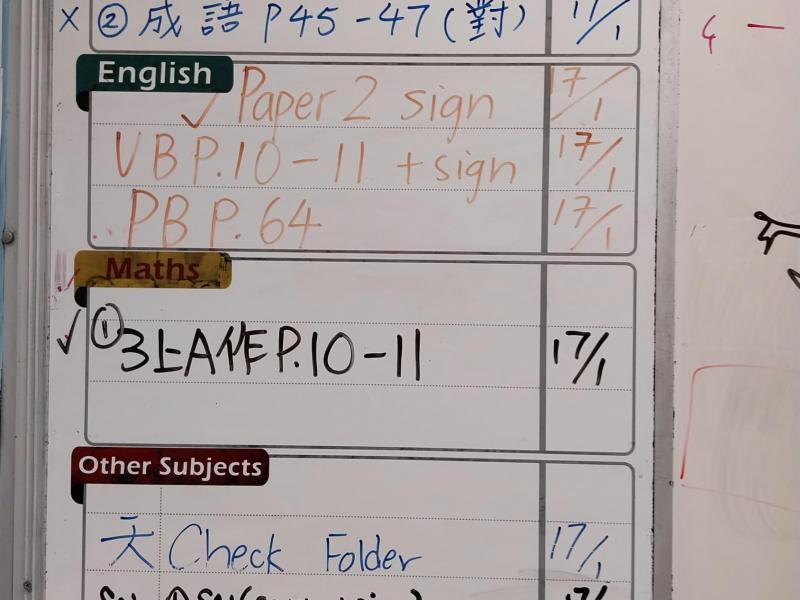 x ② 成語 P45-47(對) 17/1
English
✓ Paper 2 sign 17/1
VB P.10-11 + sign 17/1
PB P.64 17/1
Maths
✓ ① 3上A作 P.10-11 17/1
Other Subjects
天 Check Folder 17/1